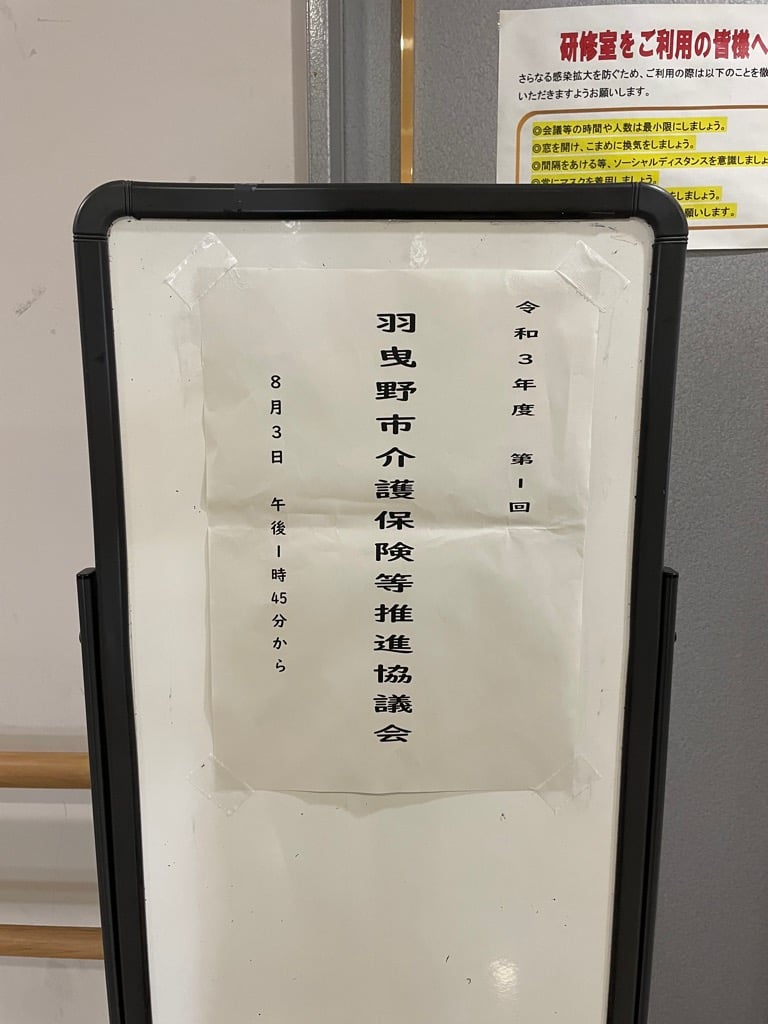 令和3年度 第1回
羽曳野市介護保険等推進協議会
8月3日 午後1時45分から
研修室をご利用の皆様へ
さらなる感染拡大を防ぐため、ご利用の際は以下のことを徹
いただきますようお願いします。
◎会議等の時間や人数は最小限にしましょう。
◎窓を開け、こまめに換気をしましょう。
◎間隔をあける等、ソーシャルディスタンスを意識しましょ
◎常にマスクを着用しましょう。
をしましょう。
願いします。